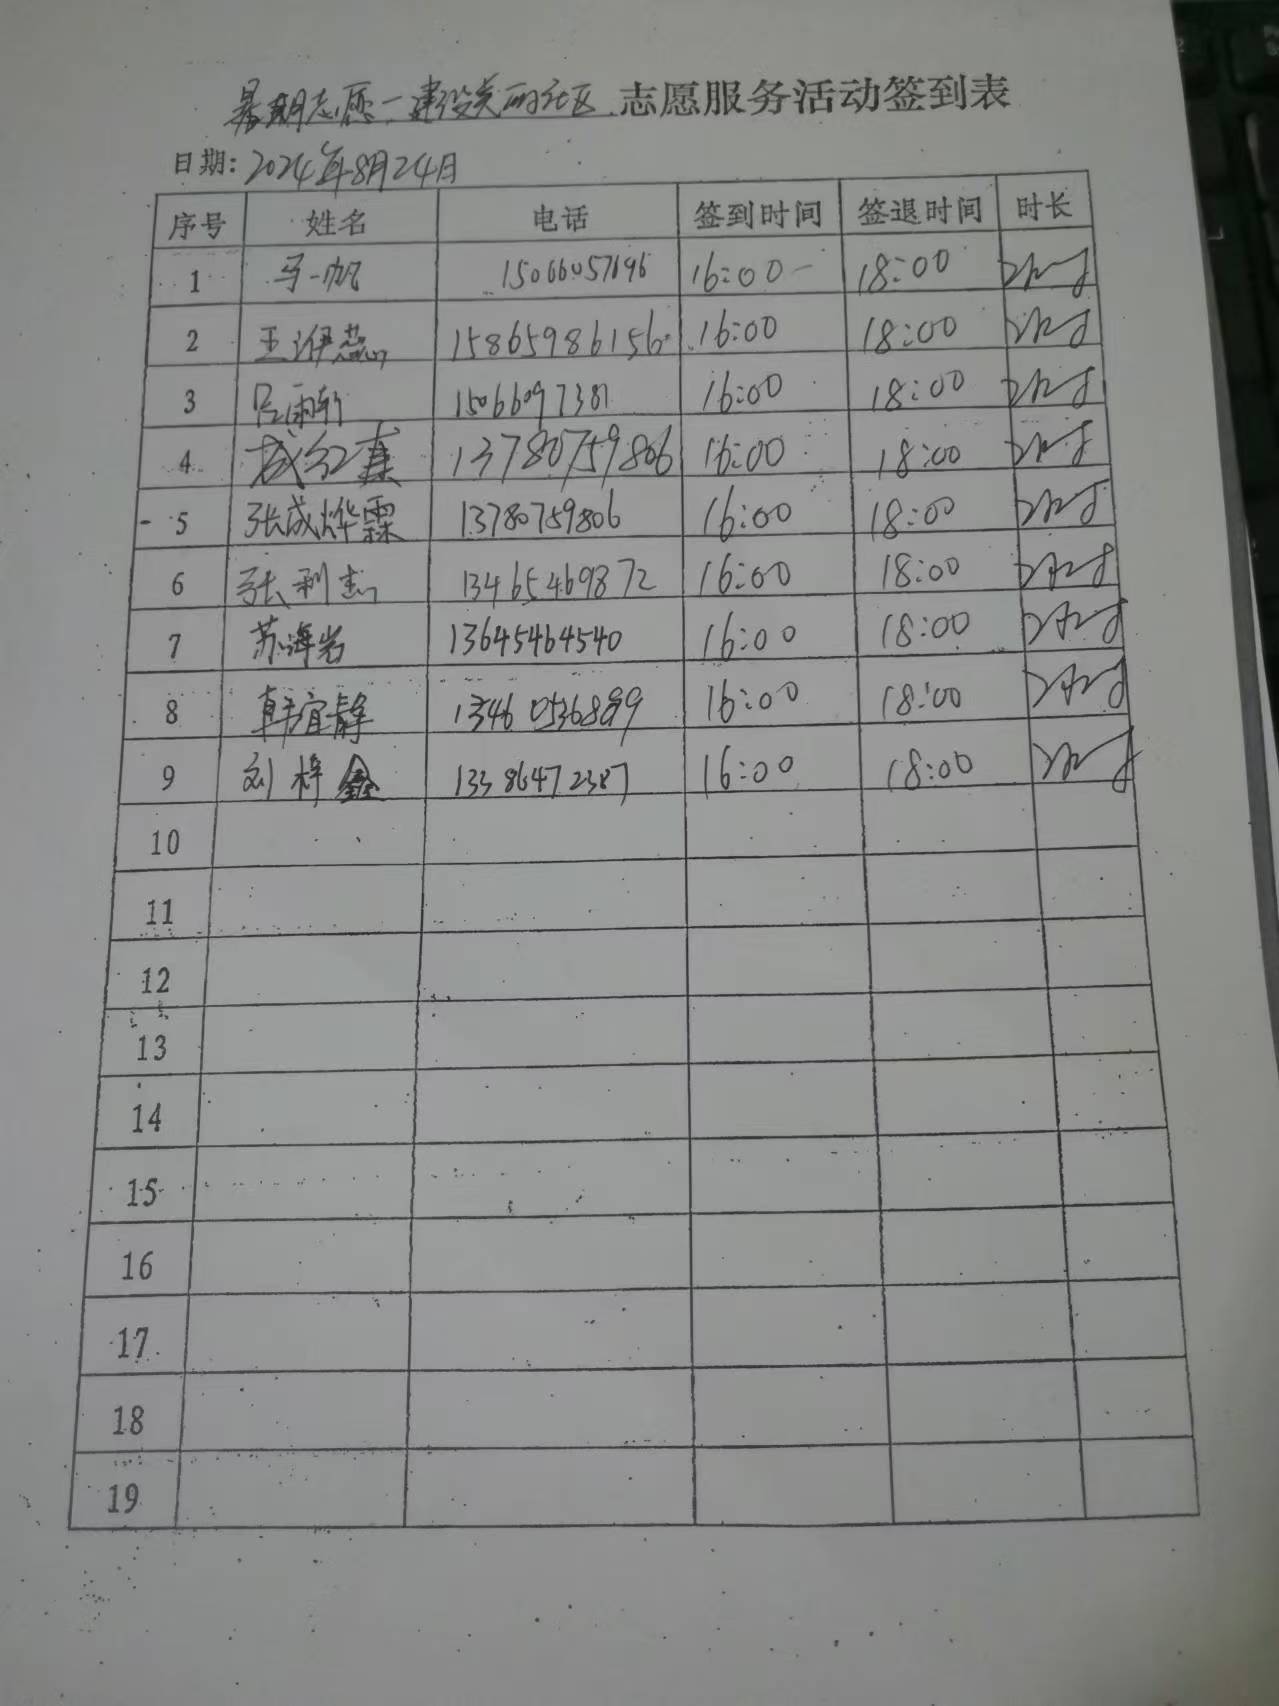 暑期志愿—建设美丽社区 志愿服务活动签到表
日期: 2024年8月24日
序号 姓名 电话 签到时间 签退时间 时长
1 马一帆 15066057696 16:00 18:00 2小时
2 王洢蕊 15865986156 16:00 18:00 2小时
3 吕雨轩 15066097381 16:00 18:00 2小时
4 成红真 13780759806 16:00 18:00 2小时
5 张成烨霖 13780759806 16:00 18:00 2小时
6 张利杰 13465469872 16:00 18:00 2小时
7 苏海岩 13645464540 16:00 18:00 2小时
8 韩宜静 16:00 18:00 2小时
9 刘梓鑫 13386472387 16:00 18:00 2小时
10
11
12
13
14
15
16
17
18
19